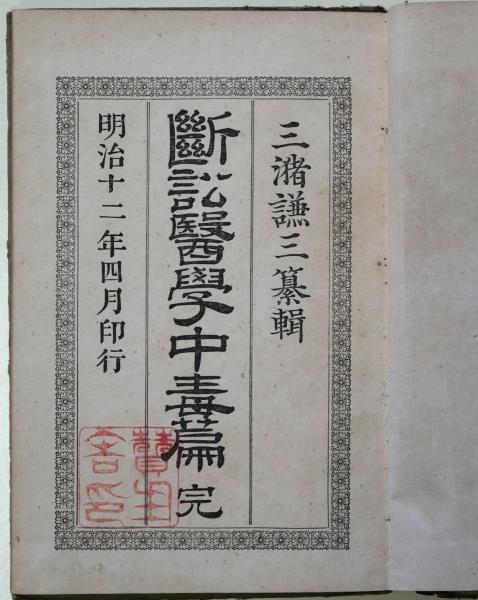 三瀦謙三纂輯
斷訟醫學中毒篇 完
明治十二年四月印行